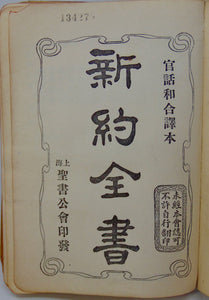 13427
官話和合譯本
新約全書
上海
聖書公會印發
未經本會認可
不許自行翻印